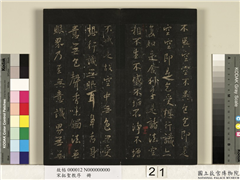 不異空空不異色色即是
空空即是色受想行識亦
復如是舍利子是諸法空
相不生不滅不垢不淨不增
不減是故空中無色無受
想行識無眼耳鼻舌身
意無色聲香味觸法無
眼界乃至無意識界無
故帖 000012 N000000000
宋拓聖教序 冊
21
國立故宮博物院